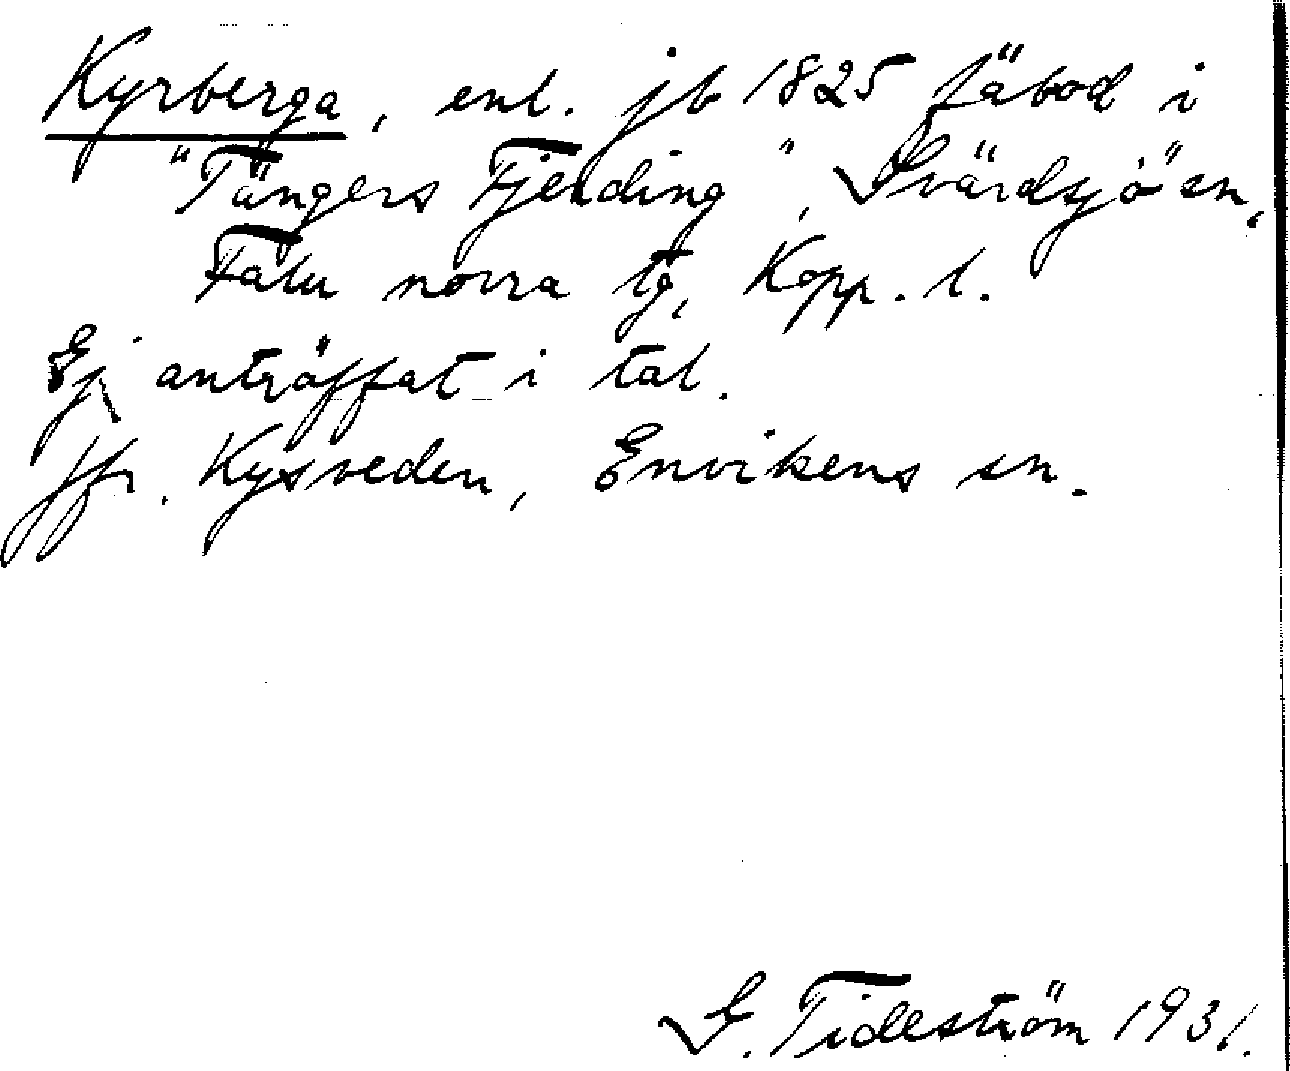 Kyrberga, enl. jb 1825 fäbod i
"Tängers Fjerding", Svärdsjö sn,
Falu norra tg, Kopp. l.
Ej anträffat i tal.
Jfr. Kysveden, Envikens sn.
G. Tideström 1931.